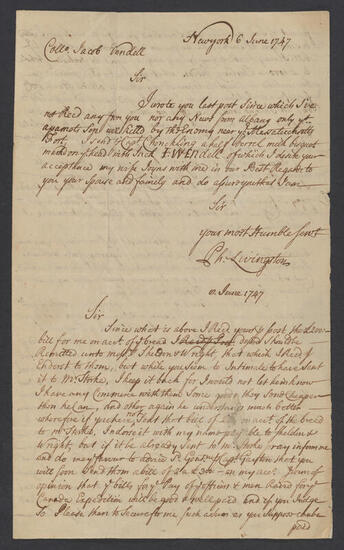 Newyork 6 June 1747
Collo Jacob Wendell
Sir
I wrote you last post Since which I've
not Recd any from you nor any News from Albany only yt
a pamots Son was killed by the Enemy near ye Massachusetts
Fort. I send pr Capt a half Barrel milk bisquet
markd on ye head with Inck J. WENdell of which I desire your
acceptance my wife Joyns with me in our Best Regards to
you your Spouse and family and do assure you that I am
Sir
your most Humble Servt
Ph. Livingston
June 1747
Sir
Since which is above I Recd yours pr post the
bill for me on acct of ye bread desird Should be
Remitted unto messrs Sheldon & Wright, that which I Recd I
Endorst to them, but while you Seem to Intimate to have Sent
it to Mr Storke, I keep it back for I would not let him know
I have any Commerce with them Some goods they Send Cheaper
than he Can, And other again he understands much better
wherefore if you have not Sent that bill of on acct of the bread
to mr Storke, Indorse it with my order payable to Sheldon &
Wright but if it be already Sent to mr Storke pray inform me
and do may favour to advice pr Capt Griffen that you
will soon Send them a bill of on my acct. I am of
opinion that ye bills for ye Pay of officers & men Raisd for ye
Canada Expedition will be good & well paid and if you Judge
So Please then to Secure for me Such a Sum as you Suppose to be
paid